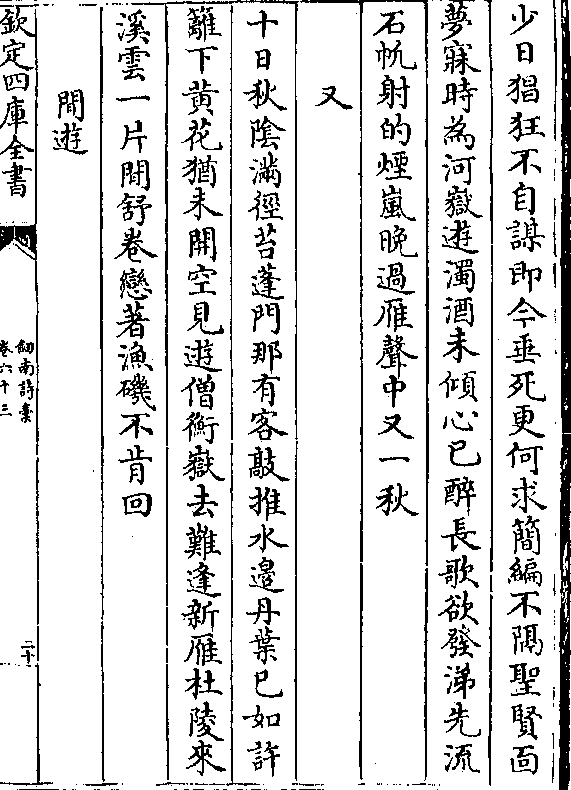 少日猖狂不自謀即今垂死更何求簡編不隔聖賢面
夢寐時為河嶽遊濁酒未傾心已醉長歌欲發涕先流
石帆射的煙嵐晚過雁聲中又一秋
又
十日秋陰滿徑苔蓬門那有客敲推水邉丹葉已如許
籬下黄花猶未開空見遊僧衡嶽去難逢新雁杜陵來
溪雲一片閒舒卷戀著漁磯不肯回
閒遊
欽定四庫全書
劒南詩稾
卷六十三
二十